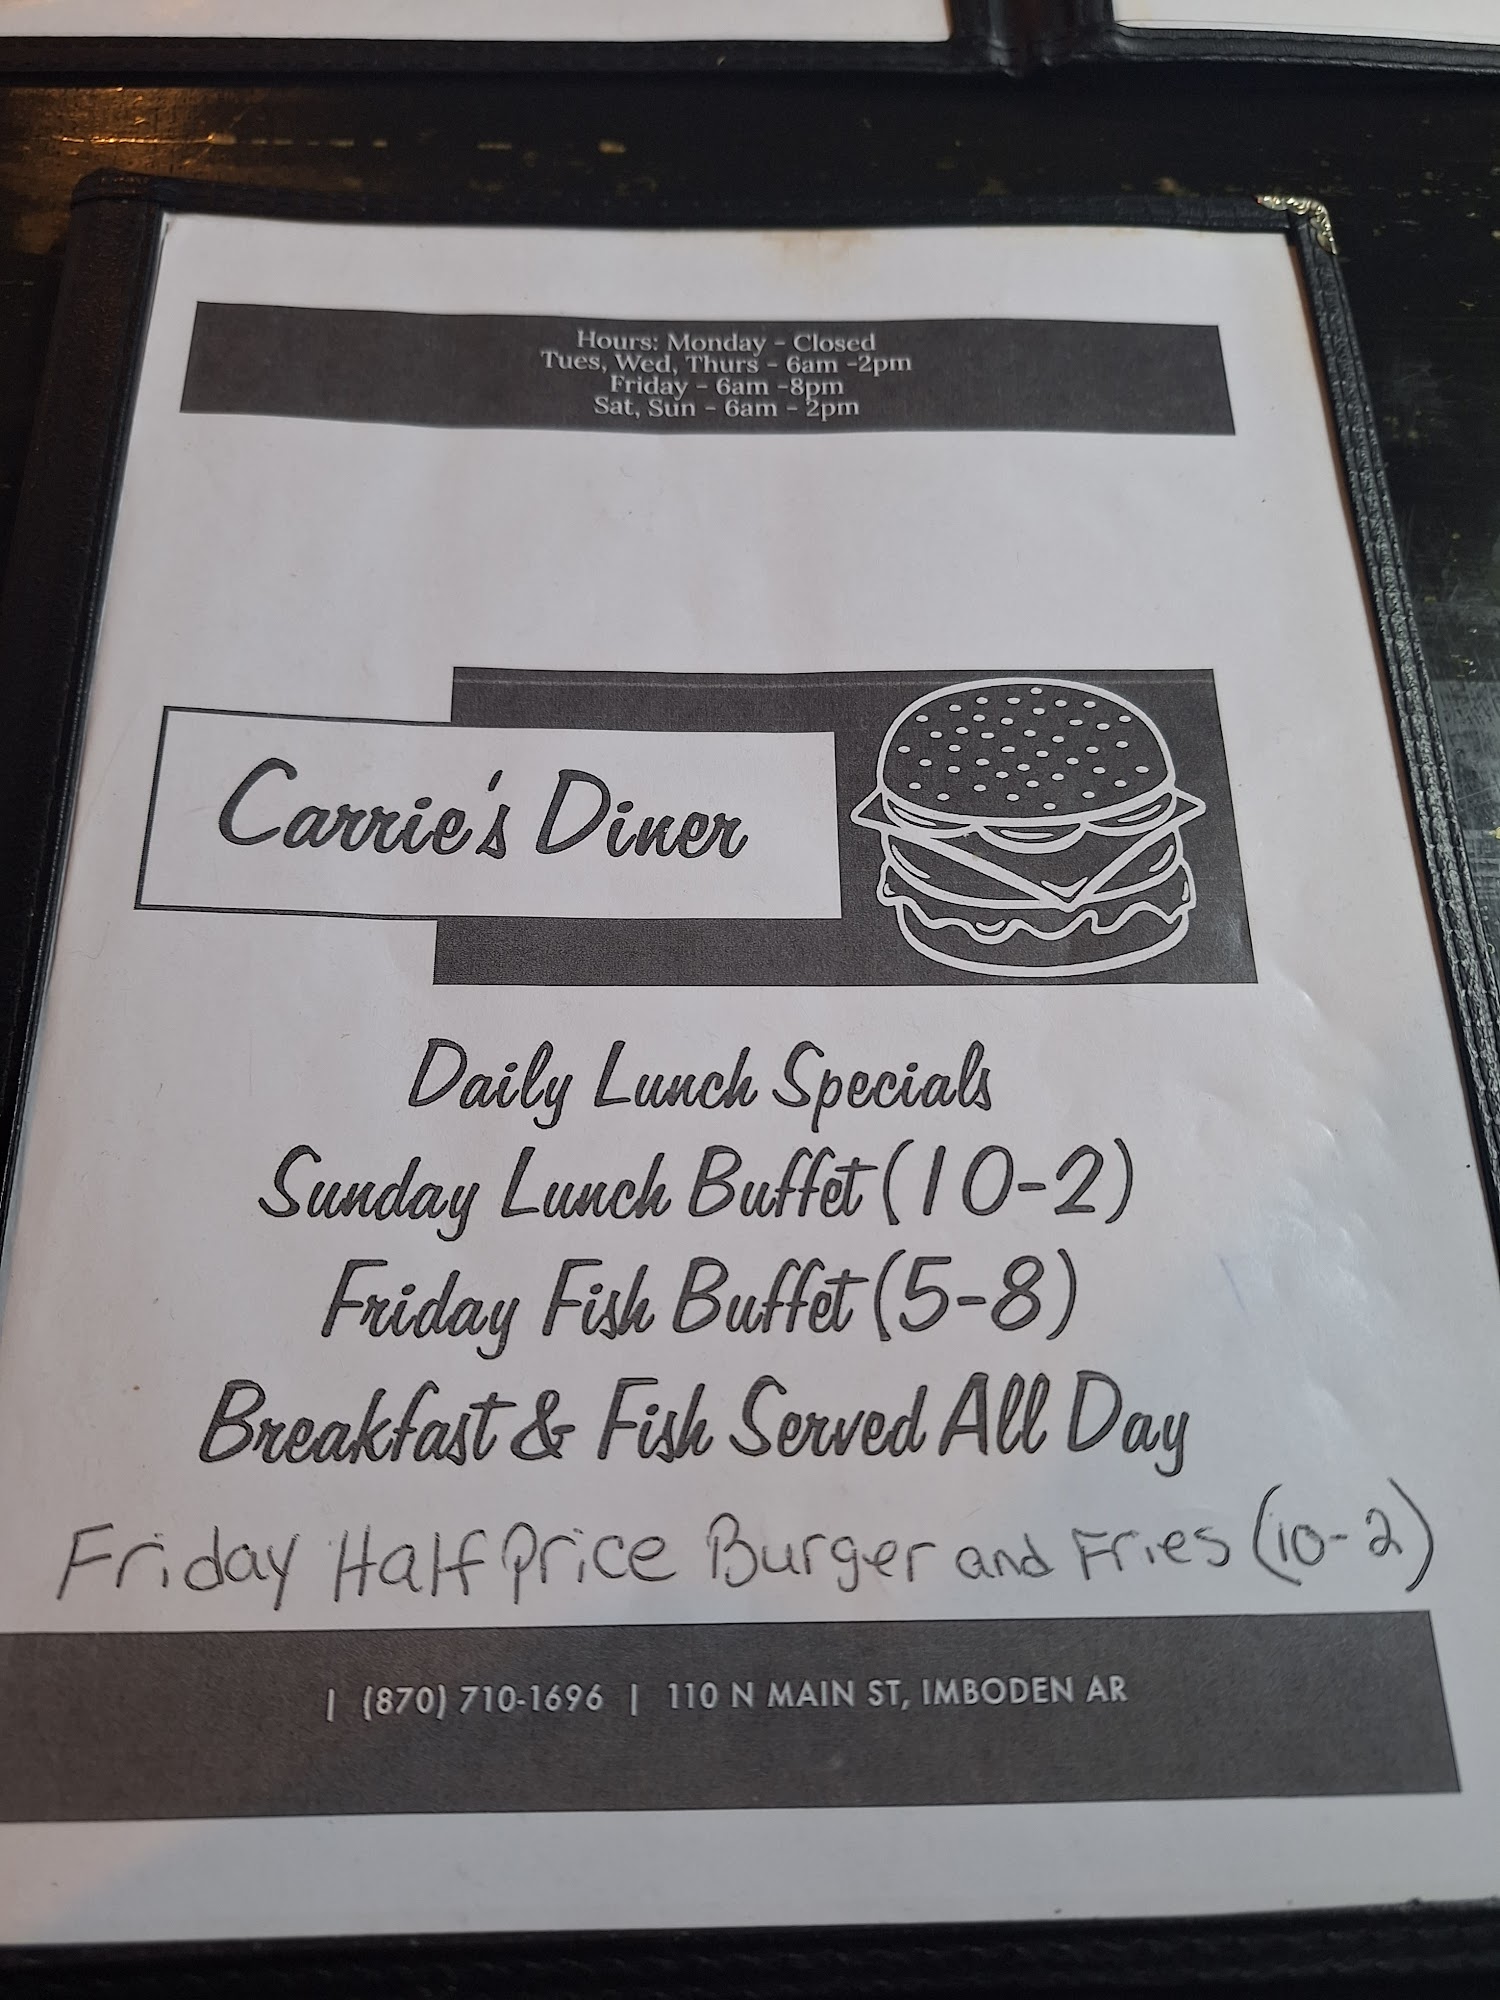 Hours: Monday - Closed
Tues, Wed, Thurs - 6am -2pm
Friday - 6am -8pm
Sat, Sun - 6am - 2pm
Carrie's Diner
Daily Lunch Specials
Sunday Lunch Buffet (10-2)
Friday Fish Buffet (5-8)
Breakfast & Fish Served All Day
Friday Half Price Burger and Fries (10-2)
| (870) 710-1696 | 110 N MAIN ST, IMBODEN AR